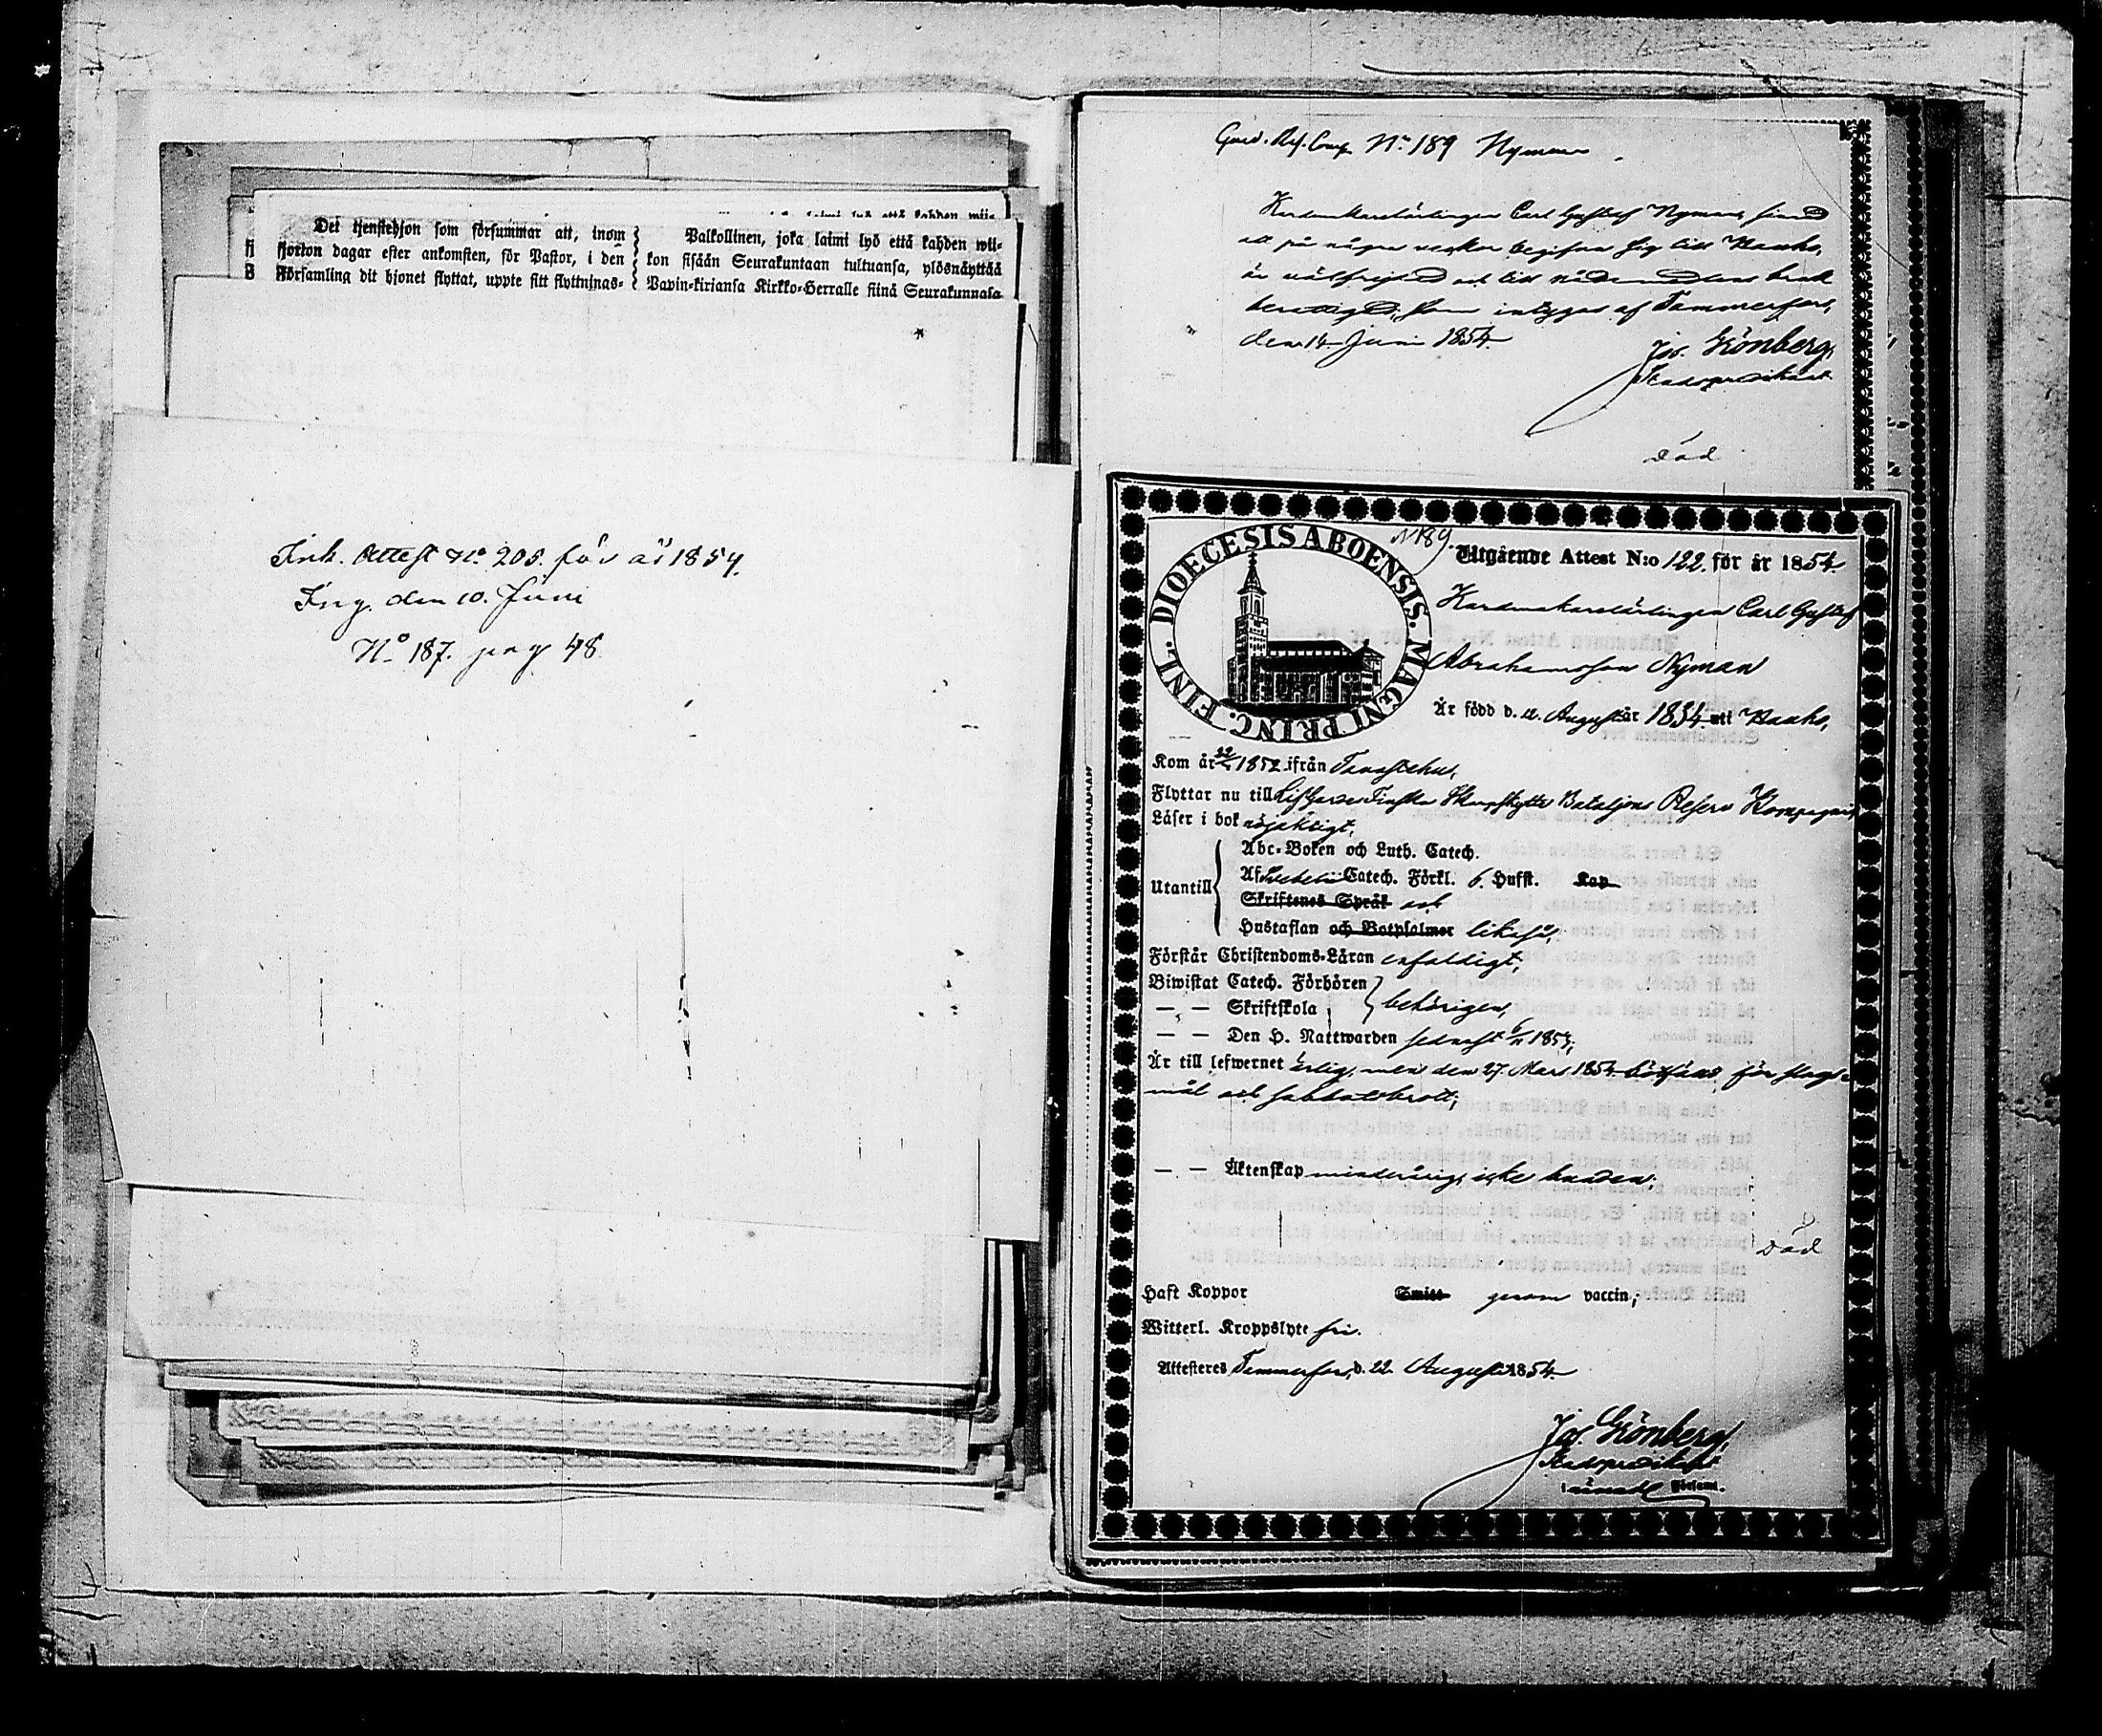 Det tjenstehjon som försummar att, inom
fjorton dagar efter ankomsten, för Pastor, i den
Församling dit hjonet flyttat, uppte sitt flyttnings-
Palkollinen, joka laimi lyö että kahden wii-
kon sisään Seurakuntaan tultuansa, ylösnäyttää
Papin-kirjansa Kirkko-Herralle siinä Seurakunnasa
Ink. Attest No 205. för år 1854.
Ing. den 10. Juni
No 187. pag 48
Gard. Res. Comp. No 189 Nyman
Carl Gustaf Nyman,
att på några veckor begifva sig till
är välfrejdad och till nådemedlens bruk
berättigad; som intygas af Tammerfors,
den 14 Juni 1854.
Jos. Grönberg,
Stadspredikant
Död
DIOECESIS ABOENSIS. MAGNI PRINC. FINL.
N 189.
Utgående Attest N:o 122. för år 1854.
Carl Gustaf
Abrahamsson Nyman
Är född d. 12. August år 1834 uti
Kom år 1852 ifrån Tavastehus,
Flyttar nu till Lifgardes Finska Skarpskytte Bataljons Reserv Kompagni
Läser i bok nöjaktigt,
Utantill
Abc-Boken och Luth. Catech.
Af Svebelii Catech. Förkl. 6. Hufst. Kap
Skriftenes Språk och
Hustaflan och Botpsalmer likaså,
Förstår Christendoms-Läran enfaldigt,
Biwistat Catech. Förhören
— — Skriftskola behörigen,
— — Den H. Nattwarden senast 1853;
Är till lefwernet ärlig, men den 27. Mars 1854 bötfäld för slags-
mål och sabbatsbrott;
— — Äktenskap minderårig, icke bunden;
Död
Haft Koppor Smitt genom vaccin;
Witterl. Kroppslyte fri.
Attesteres Tammerfors, d. 22 August 1854
Jos. Grönberg,
Stadspredikant